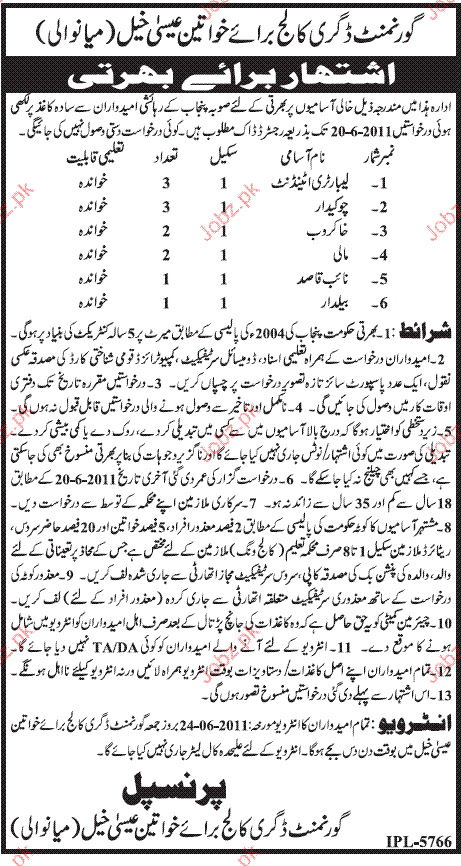 گورنمنٹ ڈگری کالج برائے خواتین عیسیٰ خیل (میانوالی)
اشتہار برائے بھرتی
ادارہ ہذا میں مندرجہ ذیل خالی آسامیوں پر بھرتی کے لئے صوبہ پنجاب کے رہائشی امیدواران سے سادہ کاغذ پر لکھی
ہوئی درخواستیں 2011-6-20 تک بذریعہ رجسٹرڈ ڈاک مطلوب ہیں۔ کوئی درخواست دستی وصول نہیں کی جائیگی۔
نمبر شمار نام آسامی سکیل تعداد تعلیمی قابلیت
1۔ لیبارٹری اٹینڈنٹ 1 3 خواندہ
2۔ چوکیدار 1 3 خواندہ
3۔ خاکروب 1 2 خواندہ
4۔ مالی 1 2 خواندہ
5۔ نائب قاصد 1 1 خواندہ
6۔ بیلدار 1 1 خواندہ
شرائط: 1۔ بھرتی حکومت پنجاب کی 2004ء کی پالیسی کے مطابق میرٹ پر 5 سالہ کنٹریکٹ کی بنیاد پر ہوگی۔
2۔ امیدواران درخواست کے ہمراہ تعلیمی اسناد، ڈومیسائل سرٹیفکیٹ، کمپیوٹرائزڈ قومی شناختی کارڈ کی مصدقہ عکسی
نقول، ایک عدد پاسپورٹ سائز تازہ تصویر درخواست پر چسپاں کریں۔ 3۔ درخواستیں مقررہ تاریخ تک دفتری
اوقات کار میں وصول کی جائیں گی۔ 4۔ نامکمل اور تاخیر سے وصول ہونے والی درخواستیں قابل قبول نہ ہوں گی۔
5۔ زیر دستخطی کو اختیار ہوگا کہ درج بالا آسامیوں میں سے کسی میں تبدیلی کردے، روک دے یا کمی بیشی کردے۔
تبدیلی کی صورت میں کوئی اشتہار/نوٹس جاری نہیں کیا جائے گا اور ناگزیر وجوہات کی بنا پر بھرتی منسوخ بھی کی جاسکتی
ہے، جسے کہیں بھی چیلنج نہ کیا جاسکے گا۔ 6۔ درخواست گزار کی عمر دی گئی آخری تاریخ 2011-6-20 کے مطابق
18 سال سے کم اور 35 سال سے زائد نہ ہو۔ 7۔ سرکاری ملازمین اپنے محکمہ کے توسط سے درخواست دیں۔
8۔ مشتہر آسامیوں کا کوٹہ حکومت کی پالیسی کے مطابق 2 فیصد معذور افراد، 5 فیصد خواتین اور 20 فیصد حاضر سروس،
ریٹائرڈ ملازمین سکیل 1 تا 8 صرف محکمہ تعلیم (کالج ونگ) ملازمین کے لئے مختص ہے جس کے محاذ پر تعیناتی کے لئے
والد، والدہ کی پنشن بک کی مصدقہ کاپی، سروس سرٹیفکیٹ مجاز اتھارٹی سے جاری شدہ لف کریں۔ 9۔ معذور کوٹہ کی
درخواست کے ساتھ معذوری سرٹیفکیٹ متعلقہ اتھارٹی سے جاری کردہ (معذور افراد کے لئے) لف کریں۔
10۔ چیئرمین کمیٹی کو یہ حق حاصل ہے کہ وہ کاغذات کی جانچ پڑتال کے بعد صرف اہل امیدواران کو انٹرویو میں شامل
ہونے کا موقع دے۔ 11۔ انٹرویو کے لئے آنے والے امیدواران کو کوئی TA/DA نہیں دیا جائے گا۔
12۔ تمام امیدواران اپنے اصل کاغذات/دستاویزات بوقت انٹرویو ہمراہ لائیں ورنہ انٹرویو کیلئے نااہل ہونگے۔
13۔ اس اشتہار سے پہلے دی گئی درخواستیں منسوخ تصور ہوں گی۔
انٹرویو: تمام امیدواران کا انٹرویو مورخہ: 2011-06-24 بروز جمعہ گورنمنٹ ڈگری کالج برائے خواتین
عیسیٰ خیل میں بوقت دن دس بجے ہوگا۔ انٹرویو کے لئے علیحدہ کال لیٹر جاری نہیں کیا جائے گا۔
پرنسپل
گورنمنٹ ڈگری کالج برائے خواتین عیسیٰ خیل (میانوالی)
IPL-5766
Jobz.pk